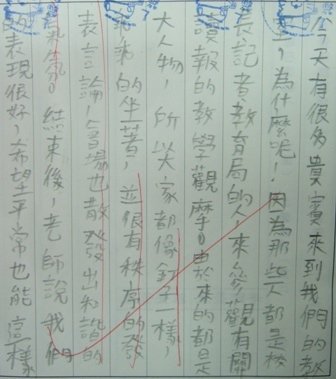 今天有很多貴賓來到我們的教
室，為什麼呢！因為那些人都是校
長記者教育局的人，來參觀有關
讀報的教學觀摩。由於來的都是
大人物，所以大家都像釘子一樣，
乖乖的坐著，並很有秩序的發
表言論，會場也散發出和諧的
氣氛。結束後，老師說我們
的表現很好，希望平常也能這樣